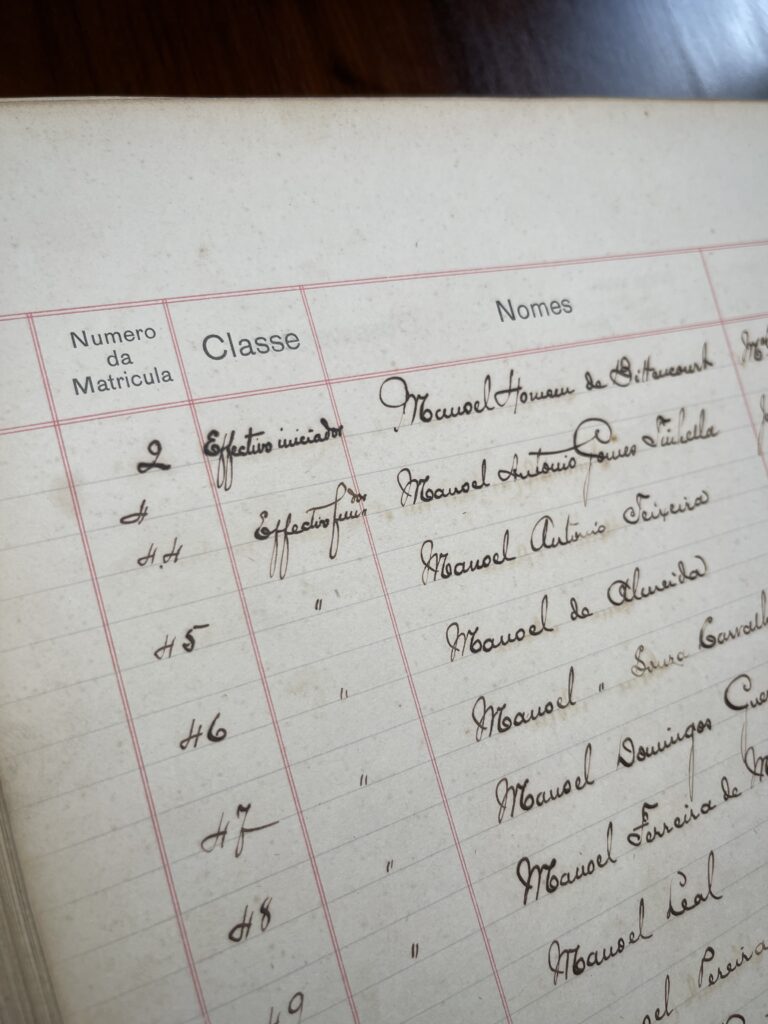 Numero da Matricula Classe Nomes
2 Effectivo iniciador Manoel Homem de Bittencourt
4 Effectivo Manoel Antonio Gomes
44 " Manoel Antonio Teixeira
45 " Manoel de Almeida
46 " Manoel " Sousa
47 " Manoel Domingos
48 " Manoel Ferreira de
49 Manoel Leal
Pereira